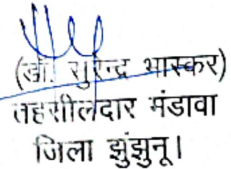 (डॉ. सुरेन्द्र भास्कर)
तहसीलदार मंडावा
जिला झुंझुनू।